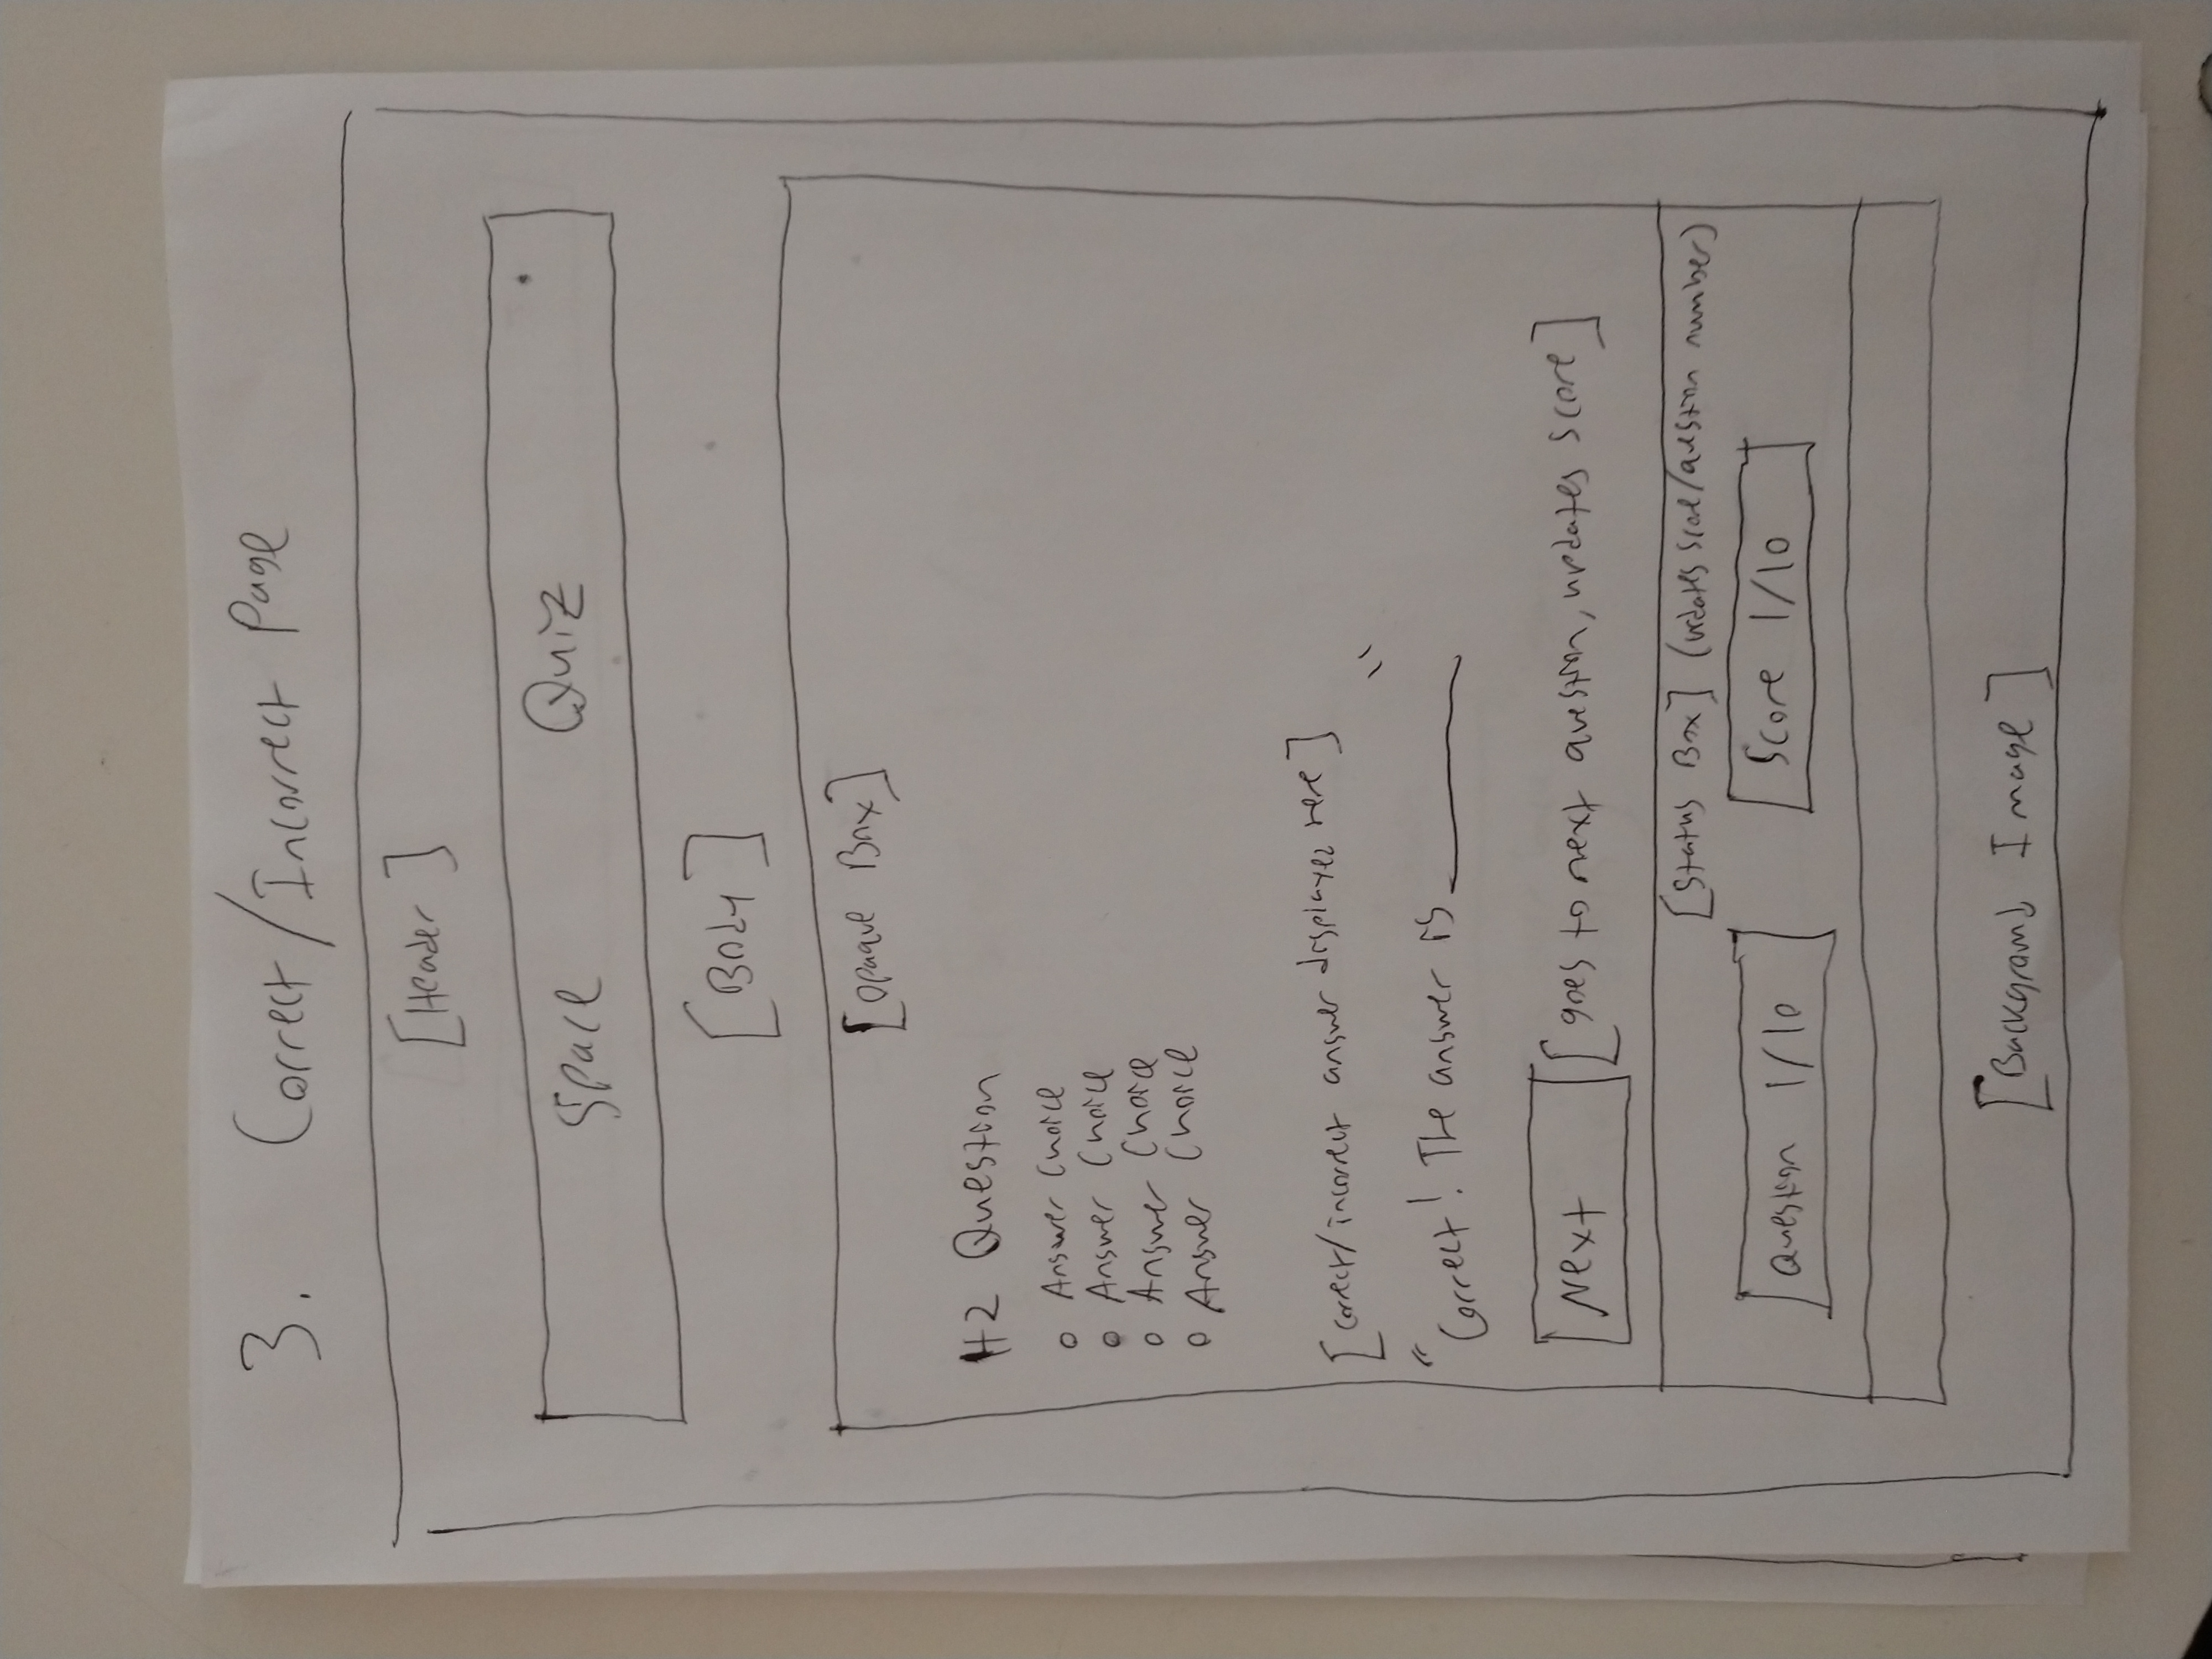 3. Correct/Incorrect Page
[Header]
Space Quiz
[Body]
[Opaque Box]
H2 Question
o Answer Choice
o Answer Choice
o Answer Choice
o Answer Choice
[correct/incorrect answer displayed here]
"Correct! The answer is ______"
Next [goes to next question, updates score]
[Status Box] (updates score/question number)
Question 1/10 Score 1/10
[Background Image]